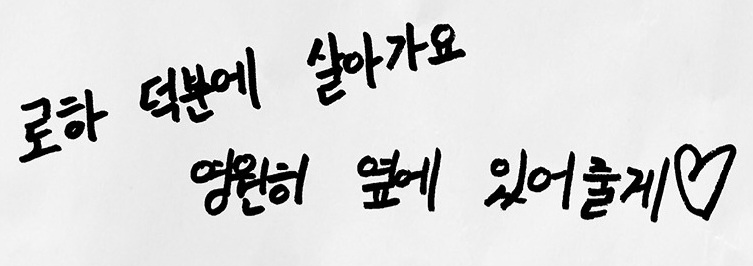 로하 덕분에 살아가요
영원히 옆에 있어줄게♡